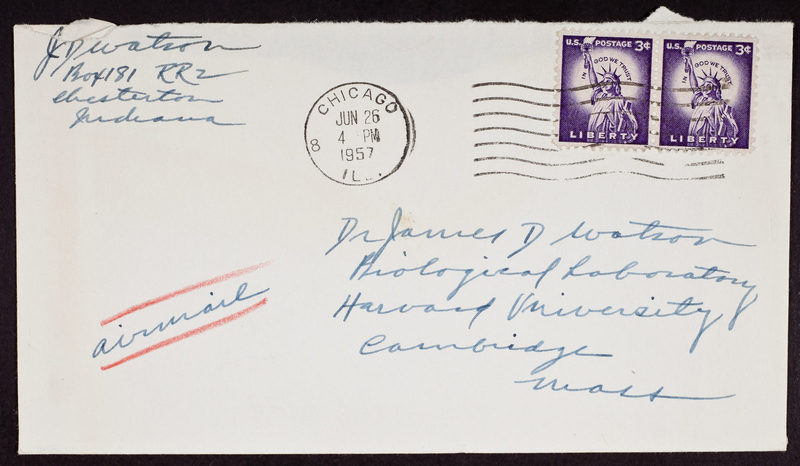 J D Watson
Box 181 RR2
Chesterton
Indiana
CHICAGO
JUN 26
4 PM
1957
8
ILL.
U.S. POSTAGE 3¢
IN GOD WE TRUST
LIBERTY
U.S. POSTAGE 3¢
IN GOD WE TRUST
LIBERTY
Dr James D Watson
Biological Laboratory
Harvard University
Cambridge
Mass
airmail